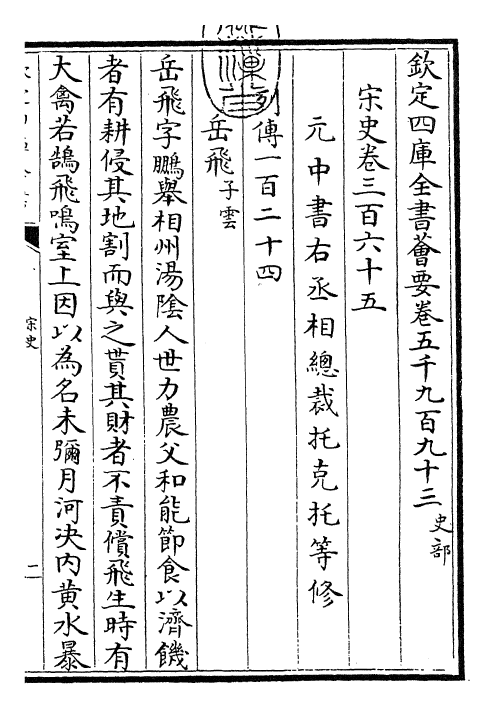 欽定四庫全書薈要卷五千九百九十三 史部
宋史卷三百六十五
元中書右丞相總裁托克托等修
列傳一百二十四
岳飛 子雲
岳飛字鵬舉相州湯陰人世力農父和能節食以濟饑
者有耕侵其地割而與之貰其財者不責償飛生時有
大禽若鵠飛鳴室上因以為名未彌月河决内黄水暴
宋史
二